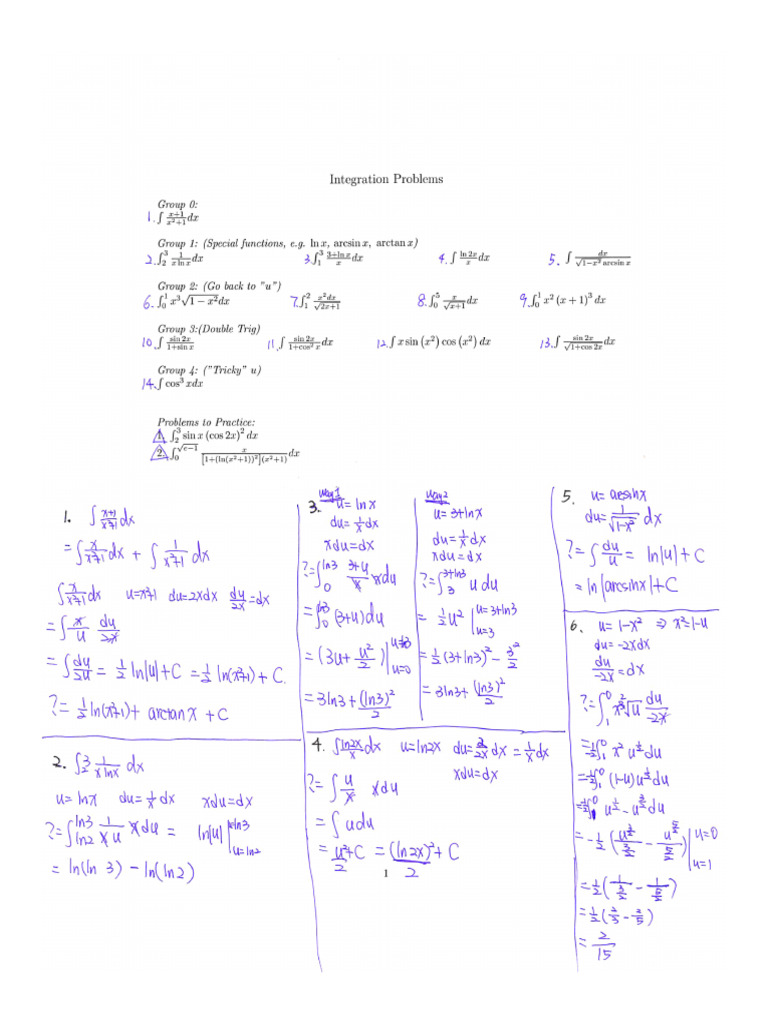 Integration Problems
Group 0:
1. ∫ (x+1)/(x²+1) dx
Group 1: (Special functions, e.g. ln x, arcsin x, arctan x)
2. ∫₂³ 1/(x ln x) dx 3. ∫₁³ (3+ln x)/x dx 4. ∫ (ln 2x)/x dx 5. ∫ dx/(√(1−x²) arcsin x)
Group 2: (Go back to "u")
6. ∫₀¹ x³√(1−x²)dx 7. ∫₁² x²dx/√(2x+1) 8. ∫₀⁵ x/√(x+1) dx 9. ∫₀¹ x² (x+1)³ dx
Group 3:(Double Trig)
10. ∫ (sin 2x)/(1+sin x) 11. ∫ (sin 2x)/(1+cos² x) dx 12. ∫ x sin (x²) cos (x²) dx 13. ∫ (sin 2x)/√(1+cos 2x) dx
Group 4: ("Tricky" u)
14. ∫ cos³ xdx
Problems to Practice:
1. ∫₂³ sin x (cos 2x)² dx
2. ∫₀^√(e−1) x/([1+(ln(x²+1))²](x²+1)) dx
1. ∫ (x+1)/(x²+1) dx
= ∫ x/(x²+1) dx + ∫ 1/(x²+1) dx
∫ x/(x²+1) dx u=x²+1 du=2xdx du/2x = dx
= ∫ x/u du/2x
= ∫ du/2u = ½ ln|u| + C = ½ ln(x²+1) + C.
?= ½ ln(x²+1) + arctan x + C
2. ∫₂³ 1/(x lnx) dx
u = lnx du = 1/x dx xdu = dx
?= ∫_ln2^ln3 1/(x u) xdu = ln|u| |_u=ln2^u=ln3
= ln(ln 3) − ln(ln2)
3. way1
u = lnx
du = 1/x dx
xdu = dx
?= ∫₀^ln3 (3+u)/x xdu
= ∫₀^ln3 (3+u)du
= (3u + u²/2) |_u=0^u=ln3
= 3ln3 + (ln3)²/2
way2
u = 3+lnx
du = 1/x dx
xdu = dx
?= ∫₃^3+ln3 u du
= ½u² |_u=3^u=3+ln3
= ½(3+ln3)² − 3²/2
= 3ln3 + (ln3)²/2
4. ∫ ln2x/x dx u = ln2x du = 2/2x dx = 1/x dx
xdu = dx
?= ∫ u/x xdu
= ∫ udu
= u²/2 + C = (ln2x)²/2 + C
5. u = arcsinx
du = 1/√(1−x²) dx
?= ∫ du/u = ln|u| + C
= ln|arcsinx| + C
6. u = 1−x² ⇒ x² = 1−u
du = −2xdx
du/−2x = dx
?= ∫₁⁰ x³√u du/−2x
= −½∫₁⁰ x² u^½ du
= −½∫₁⁰ (1−u)u^½ du
= −½∫₁⁰ u^½ − u^(3/2) du
= −½ (u^(3/2)/(3/2) − u^(5/2)/(5/2)) |_u=1^u=0
= ½ (1/(3/2) − 1/(5/2))
= ½ (2/3 − 2/5)
= 2/15
1